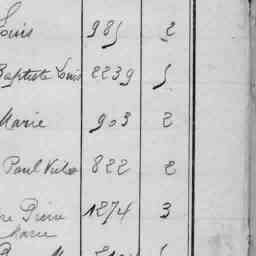 Louis 985 2
Baptiste Louis 2239 5
Marie 903 2
Paul Victor 822 2
Pierre 1874 3
Marie